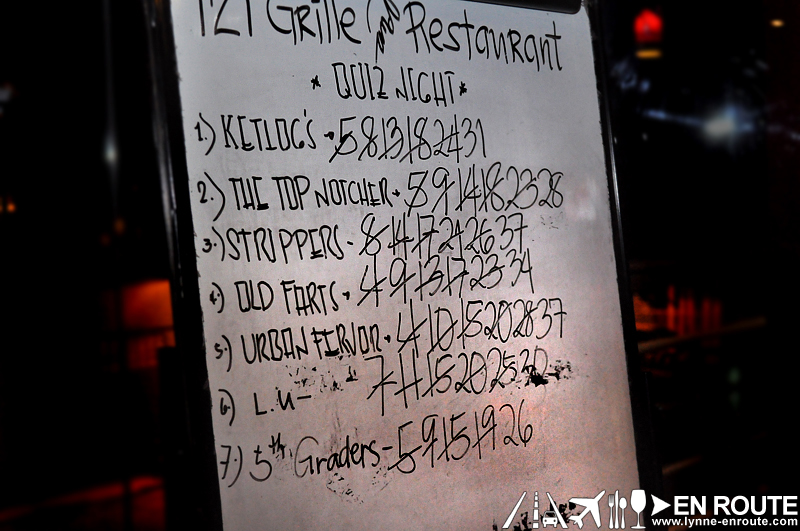 121 Grille and Restaurant
* QUIZ NIGHT *
1.) KETLOG'S - 5 8 13 18 24 31
2.) THE TOP NOTCHER - 5 9 14 18 23 28
3.) STRIPPERS - 8 14 17 24 26 37
4.) OLD FARTS - 4 9 13 17 23 34
5.) URBAN FERVOR - 4 10 15 20 28 37
6.) L.U - 7 11 15 20 25 30
7.) 5th Graders - 5 9 15 19 26
EN ROUTE
www.lynne-enroute.com